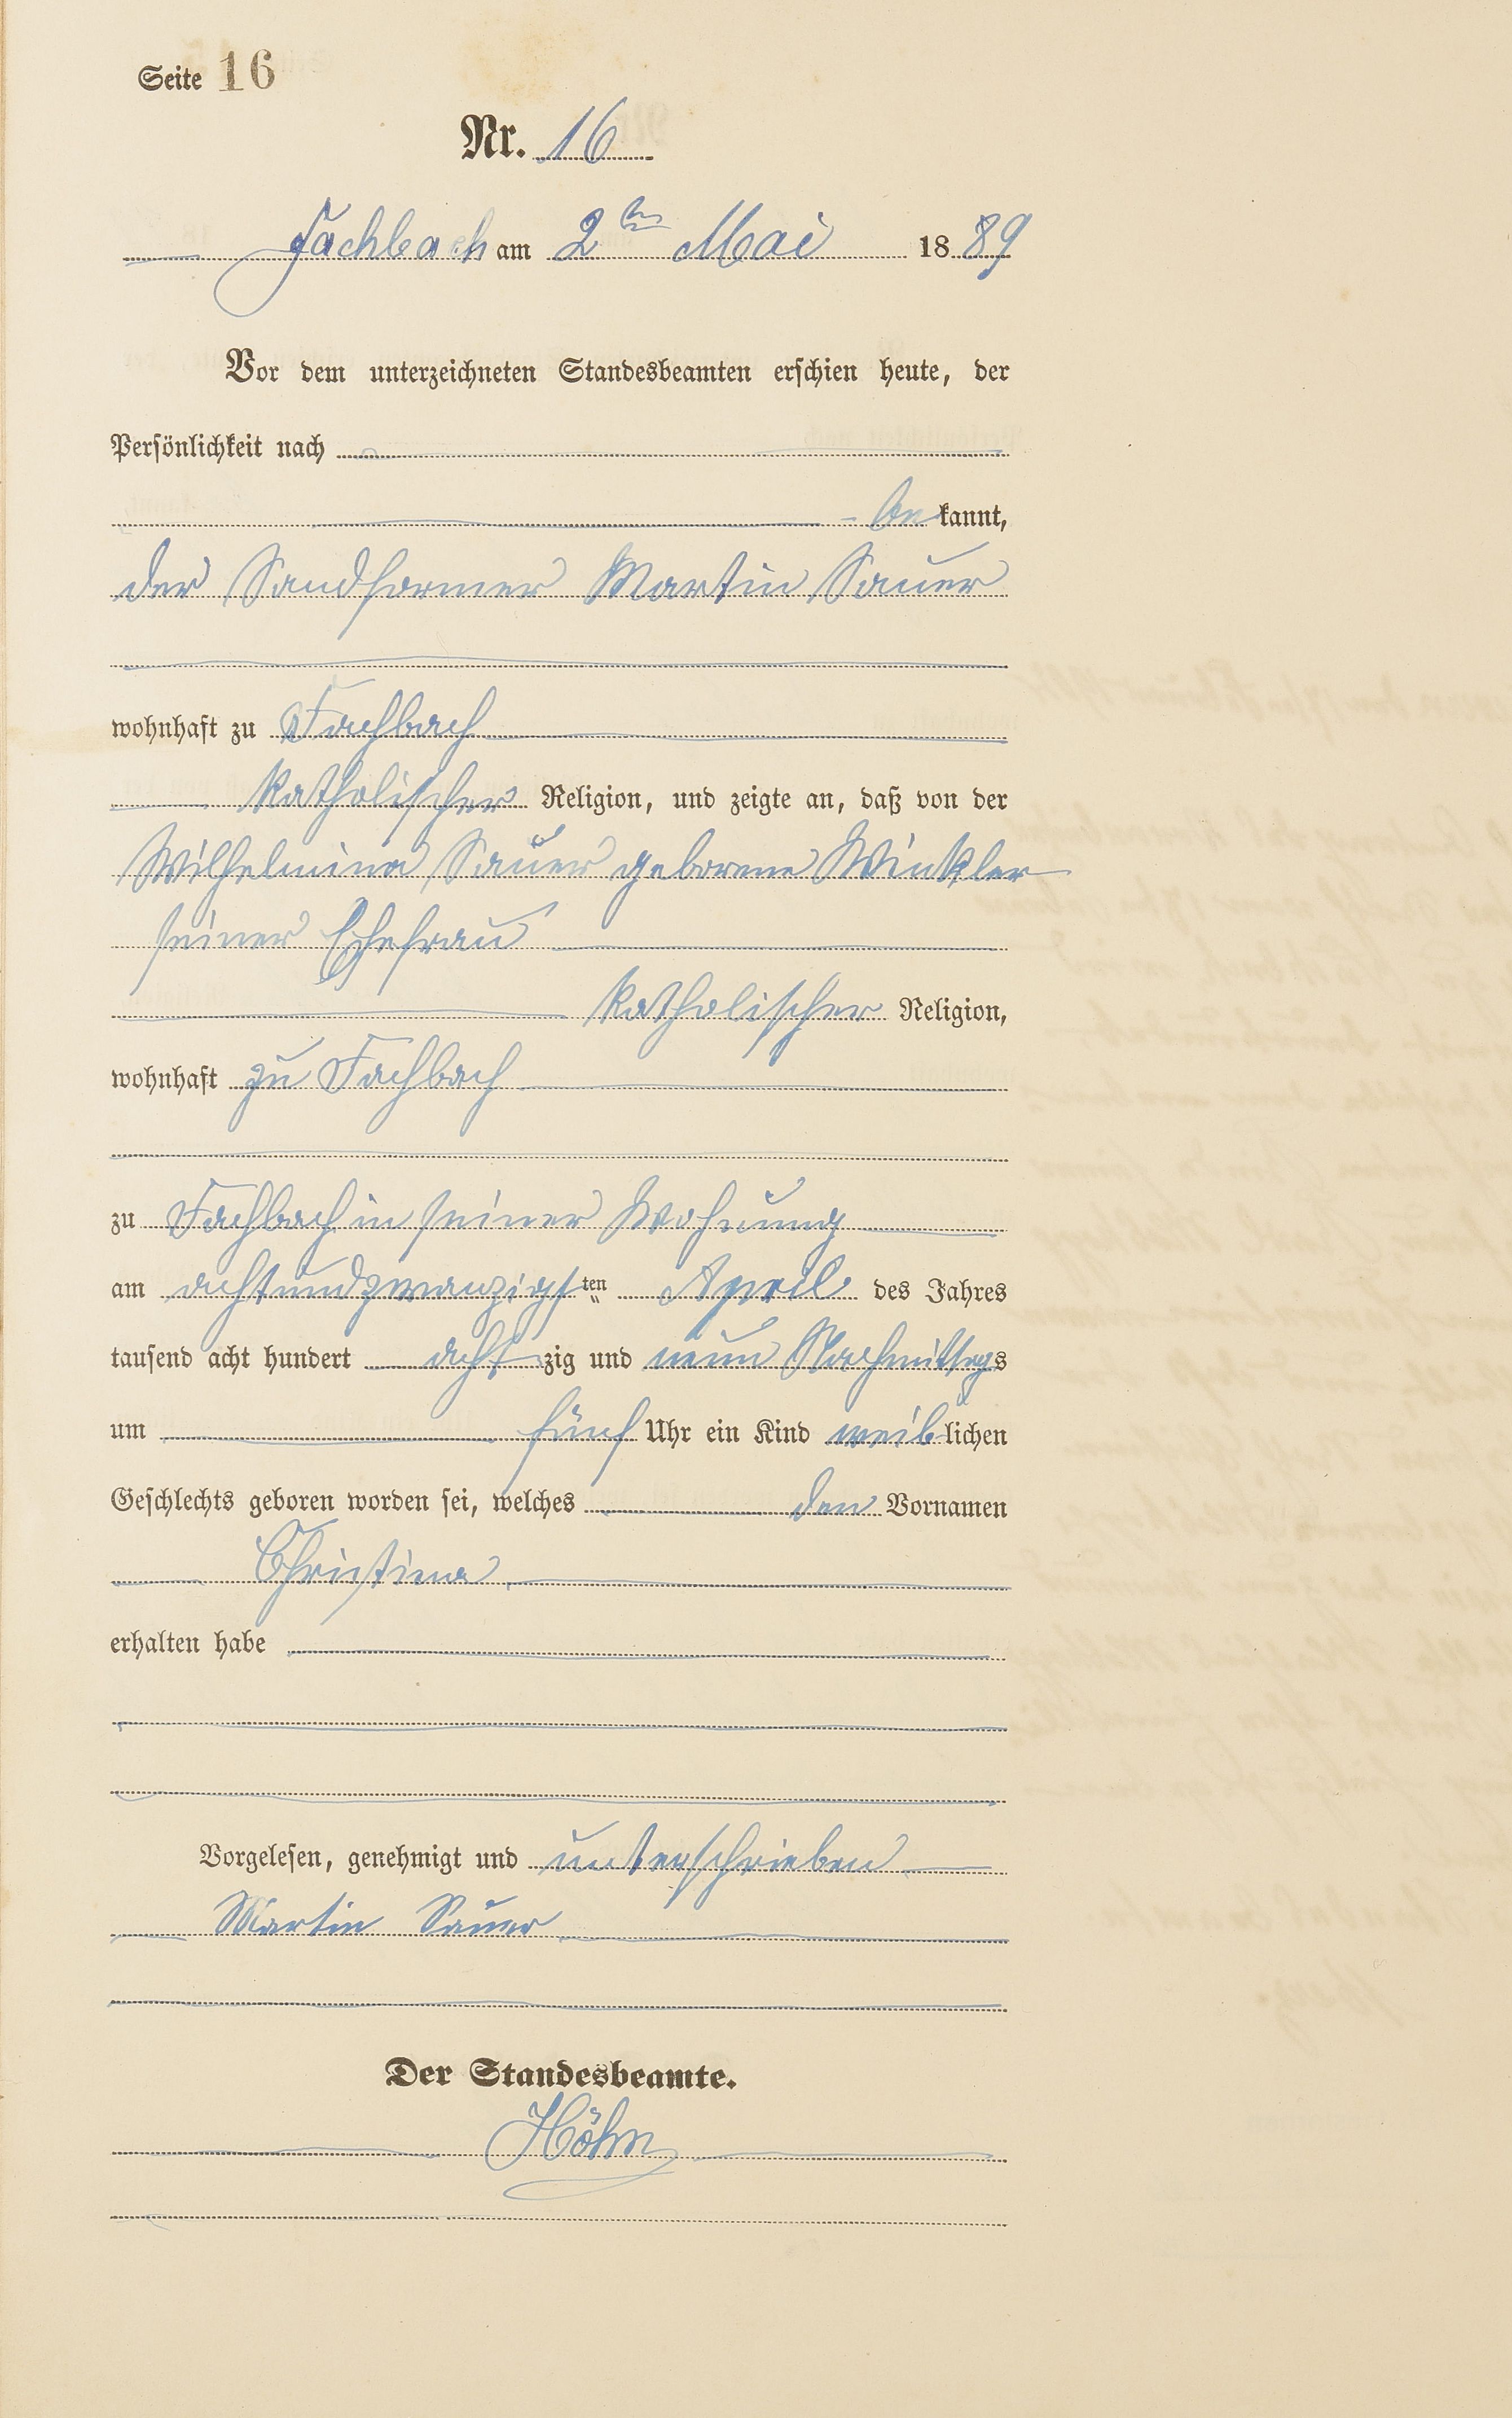 Seite 16
Nr. 16
Fachbach am 2ten Mai 1889
Vor dem unterzeichneten Standesbeamten erschien heute, der
Persönlichkeit nach
bekannt,
der Sandformer Martin Sauer
wohnhaft zu Fachbach
katholischer Religion, und zeigte an, daß von der
Wilhelmina Sauer geborene Winkler
seiner Ehefrau
katholischer Religion,
wohnhaft zu Fachbach
zu Fachbach in seiner Wohnung
am achtundzwanzigsten April des Jahres
tausend acht hundert achtzig und neun Nachmittags
um fünf Uhr ein Kind weiblichen
Geschlechts geboren worden sei, welches den Vornamen
Christina
erhalten habe
Vorgelesen, genehmigt und unterschrieben
Martin Sauer
Der Standesbeamte.
Höhn